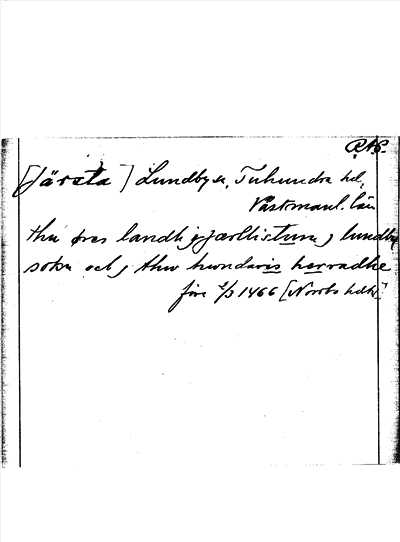 RAP.
[Järsta] Lundby sn, Tuhundra hd,
Västmanl. län
thu øres landh i jærllistum j lundby
sokn och j thw hundaris herradhe
före 2/3 1466 [Norrbo hdr]